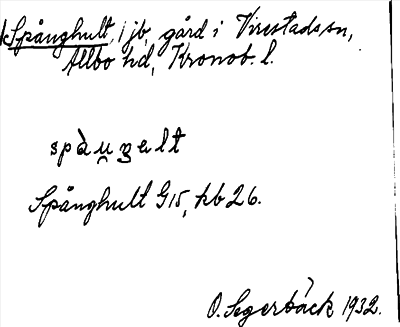 Spånghult, 1 jb, gård i Virestads sn,
Allbo hd, Kronob. l.
Spånghult G15, kb 26.
O. Segerbäck 1932.